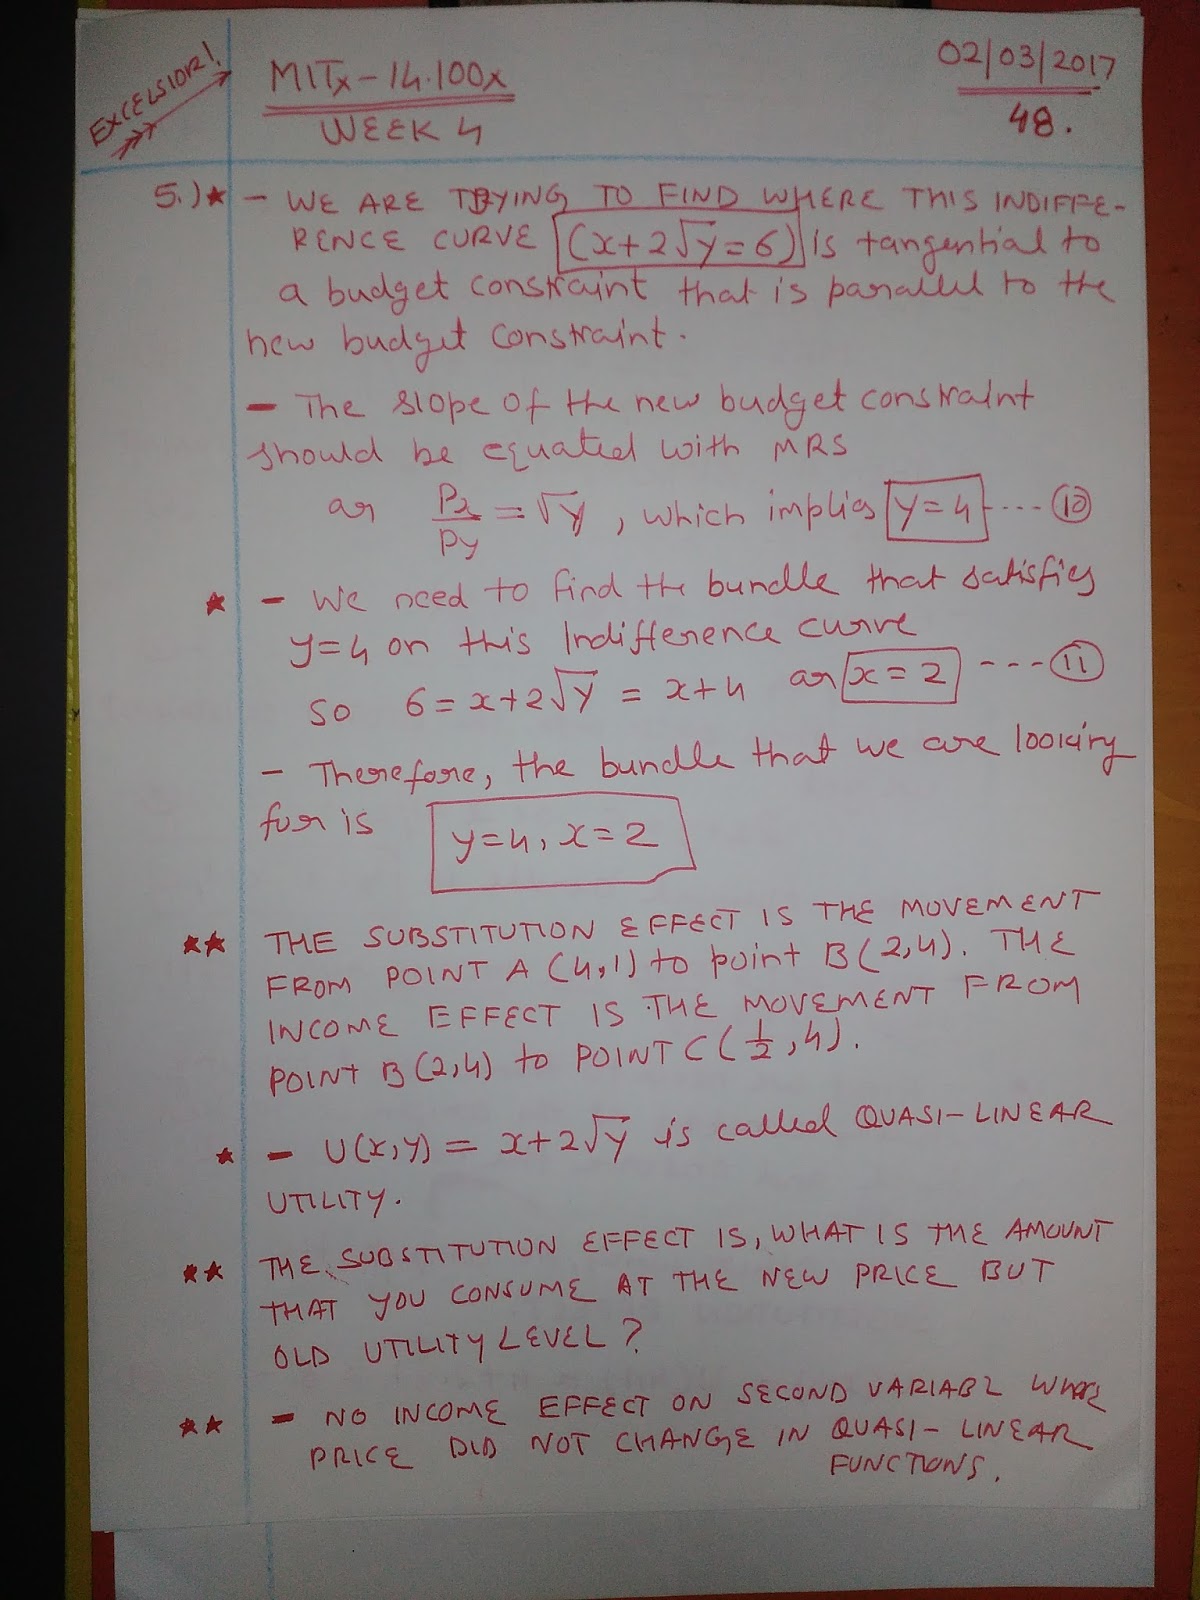 EXCELSIOR!
MITx-14.100x
WEEK 4
02/03/2017
48.
5.)★ - WE ARE TRYING TO FIND WHERE THIS INDIFFE-
RENCE CURVE (x+2√y=6) is tangential to
a budget constraint that is parallel to the
new budget constraint.
- The slope of the new budget constraint
should be equated with MRS
or Px/Py = √y, which implies y=4 ---- (10)
★ - We need to find the bundle that satisfies
y=4 on this Indifference curve
So 6=x+2√y = x+4 or x=2 ---- (11)
- Therefore, the bundle that we are looking
for is y=4, x=2
★★ THE SUBSTITUTION EFFECT IS THE MOVEMENT
FROM POINT A (4,1) to point B(2,4). THE
INCOME EFFECT IS THE MOVEMENT FROM
POINT B(2,4) to POINT C(1/2,4).
★ - U(x,y) = x+2√y is called QUASI-LINEAR
UTILITY.
★★ THE SUBSTITUTION EFFECT IS, WHAT IS THE AMOUNT
THAT YOU CONSUME AT THE NEW PRICE BUT
OLD UTILITY LEVEL?
★★ - NO INCOME EFFECT ON SECOND VARIABL WHOSE
PRICE DID NOT CHANGE IN QUASI-LINEAR
FUNCTIONS.